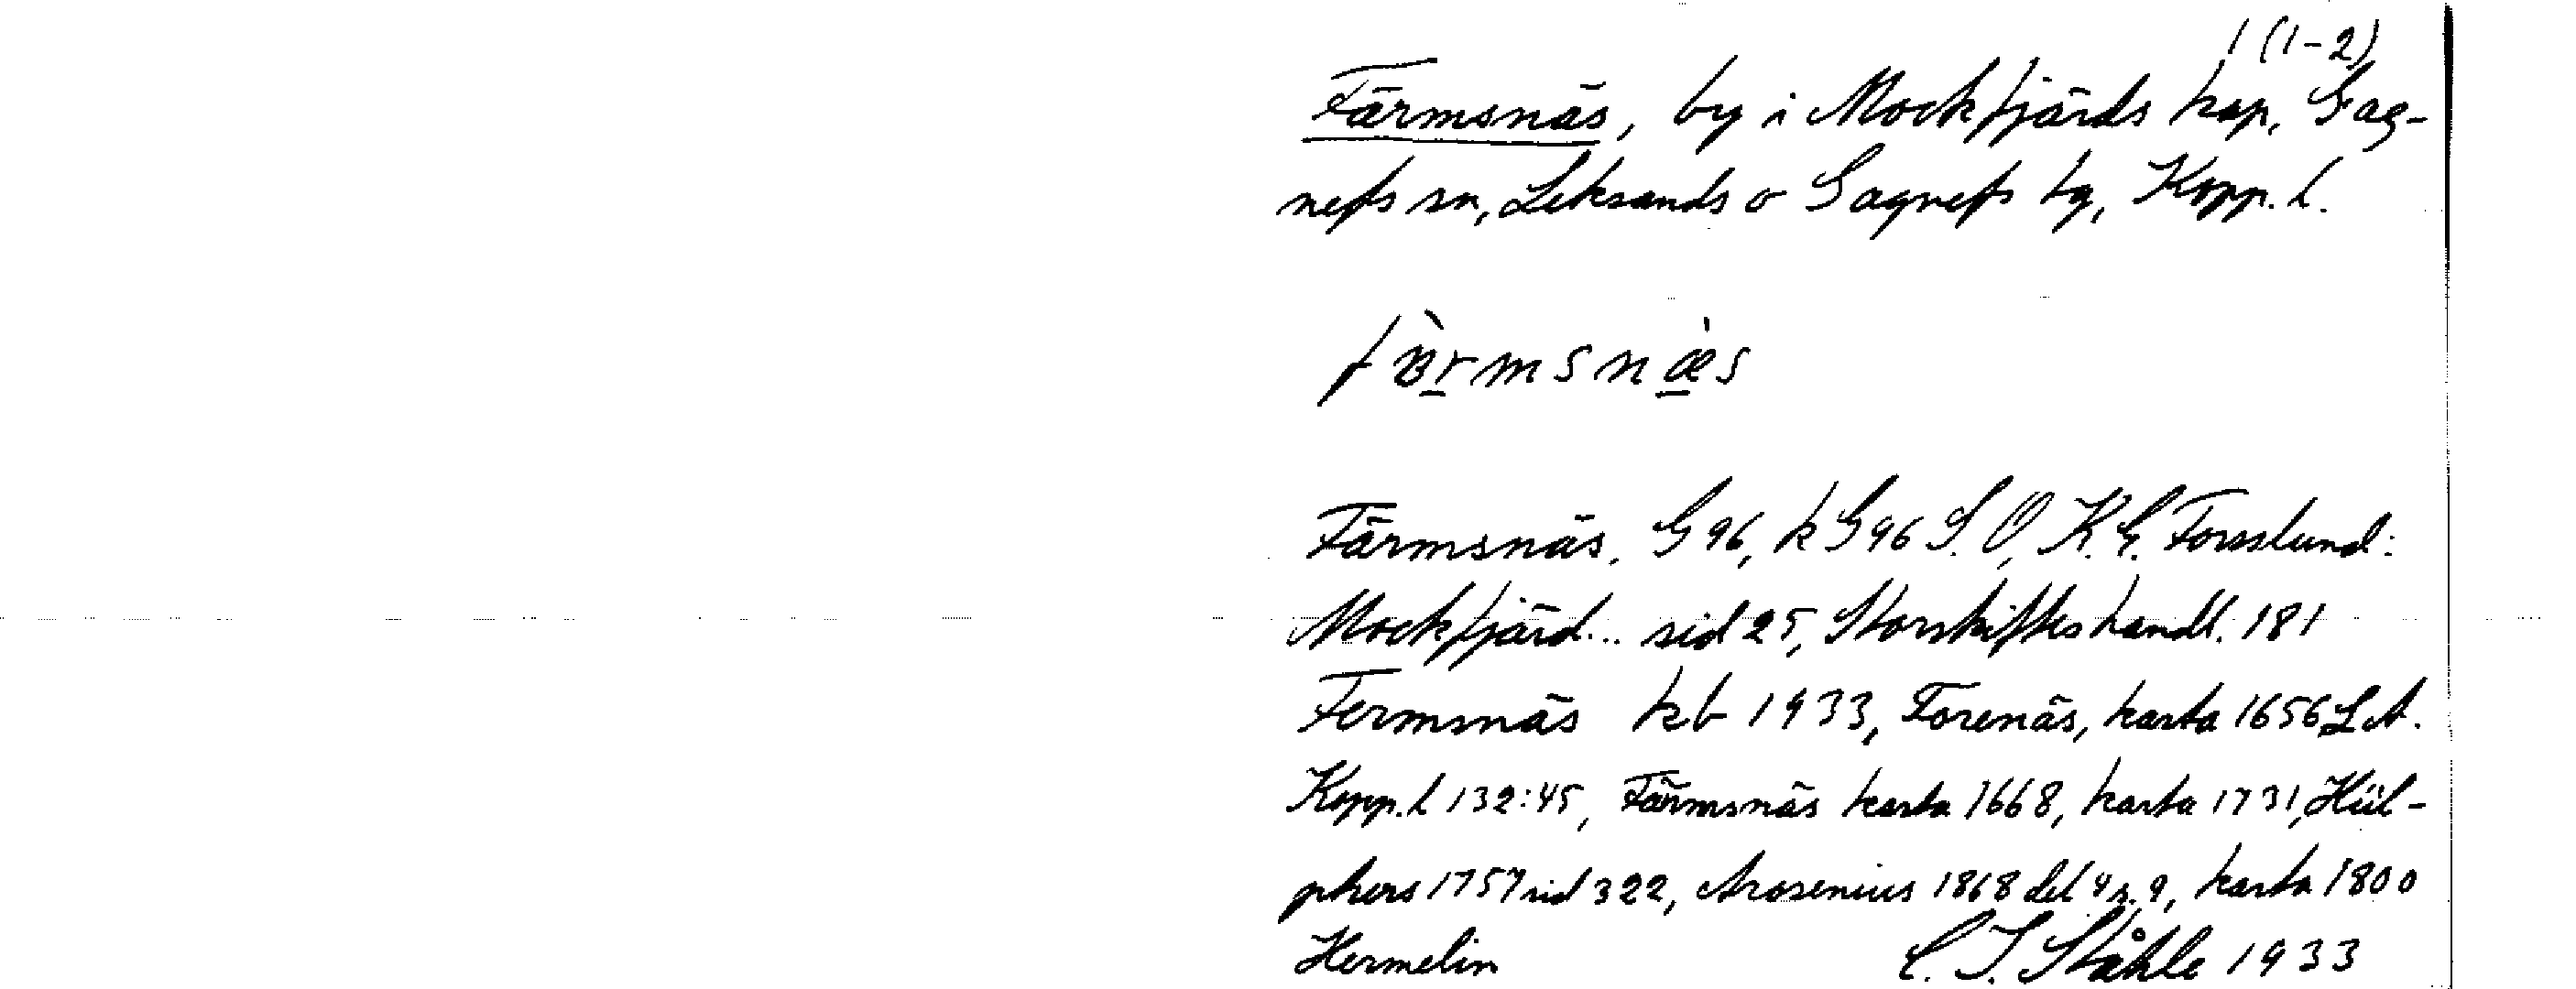 1 (1-2)
Färmsnäs, by i Mockfjärds kap, Gag-
nefs sn, Leksands o Gagnefs tg, Kopp. l.
Färmsnäs, G 96, k G 96 S. O, K. E. Forsslund:
Mockfjärd... sid 25, Storskifteshandl. 181
Fermsnäs kb 1933, Forenäs, karta 1656 L A.
Kopp. l 132:45, Färmsnäs karta 1668, karta 1731, Hül-
phers 1757 sid 322, Arosenius 1868 del 4 s. 9, karta 1800
Hermelin C. I. Ståhle 1933